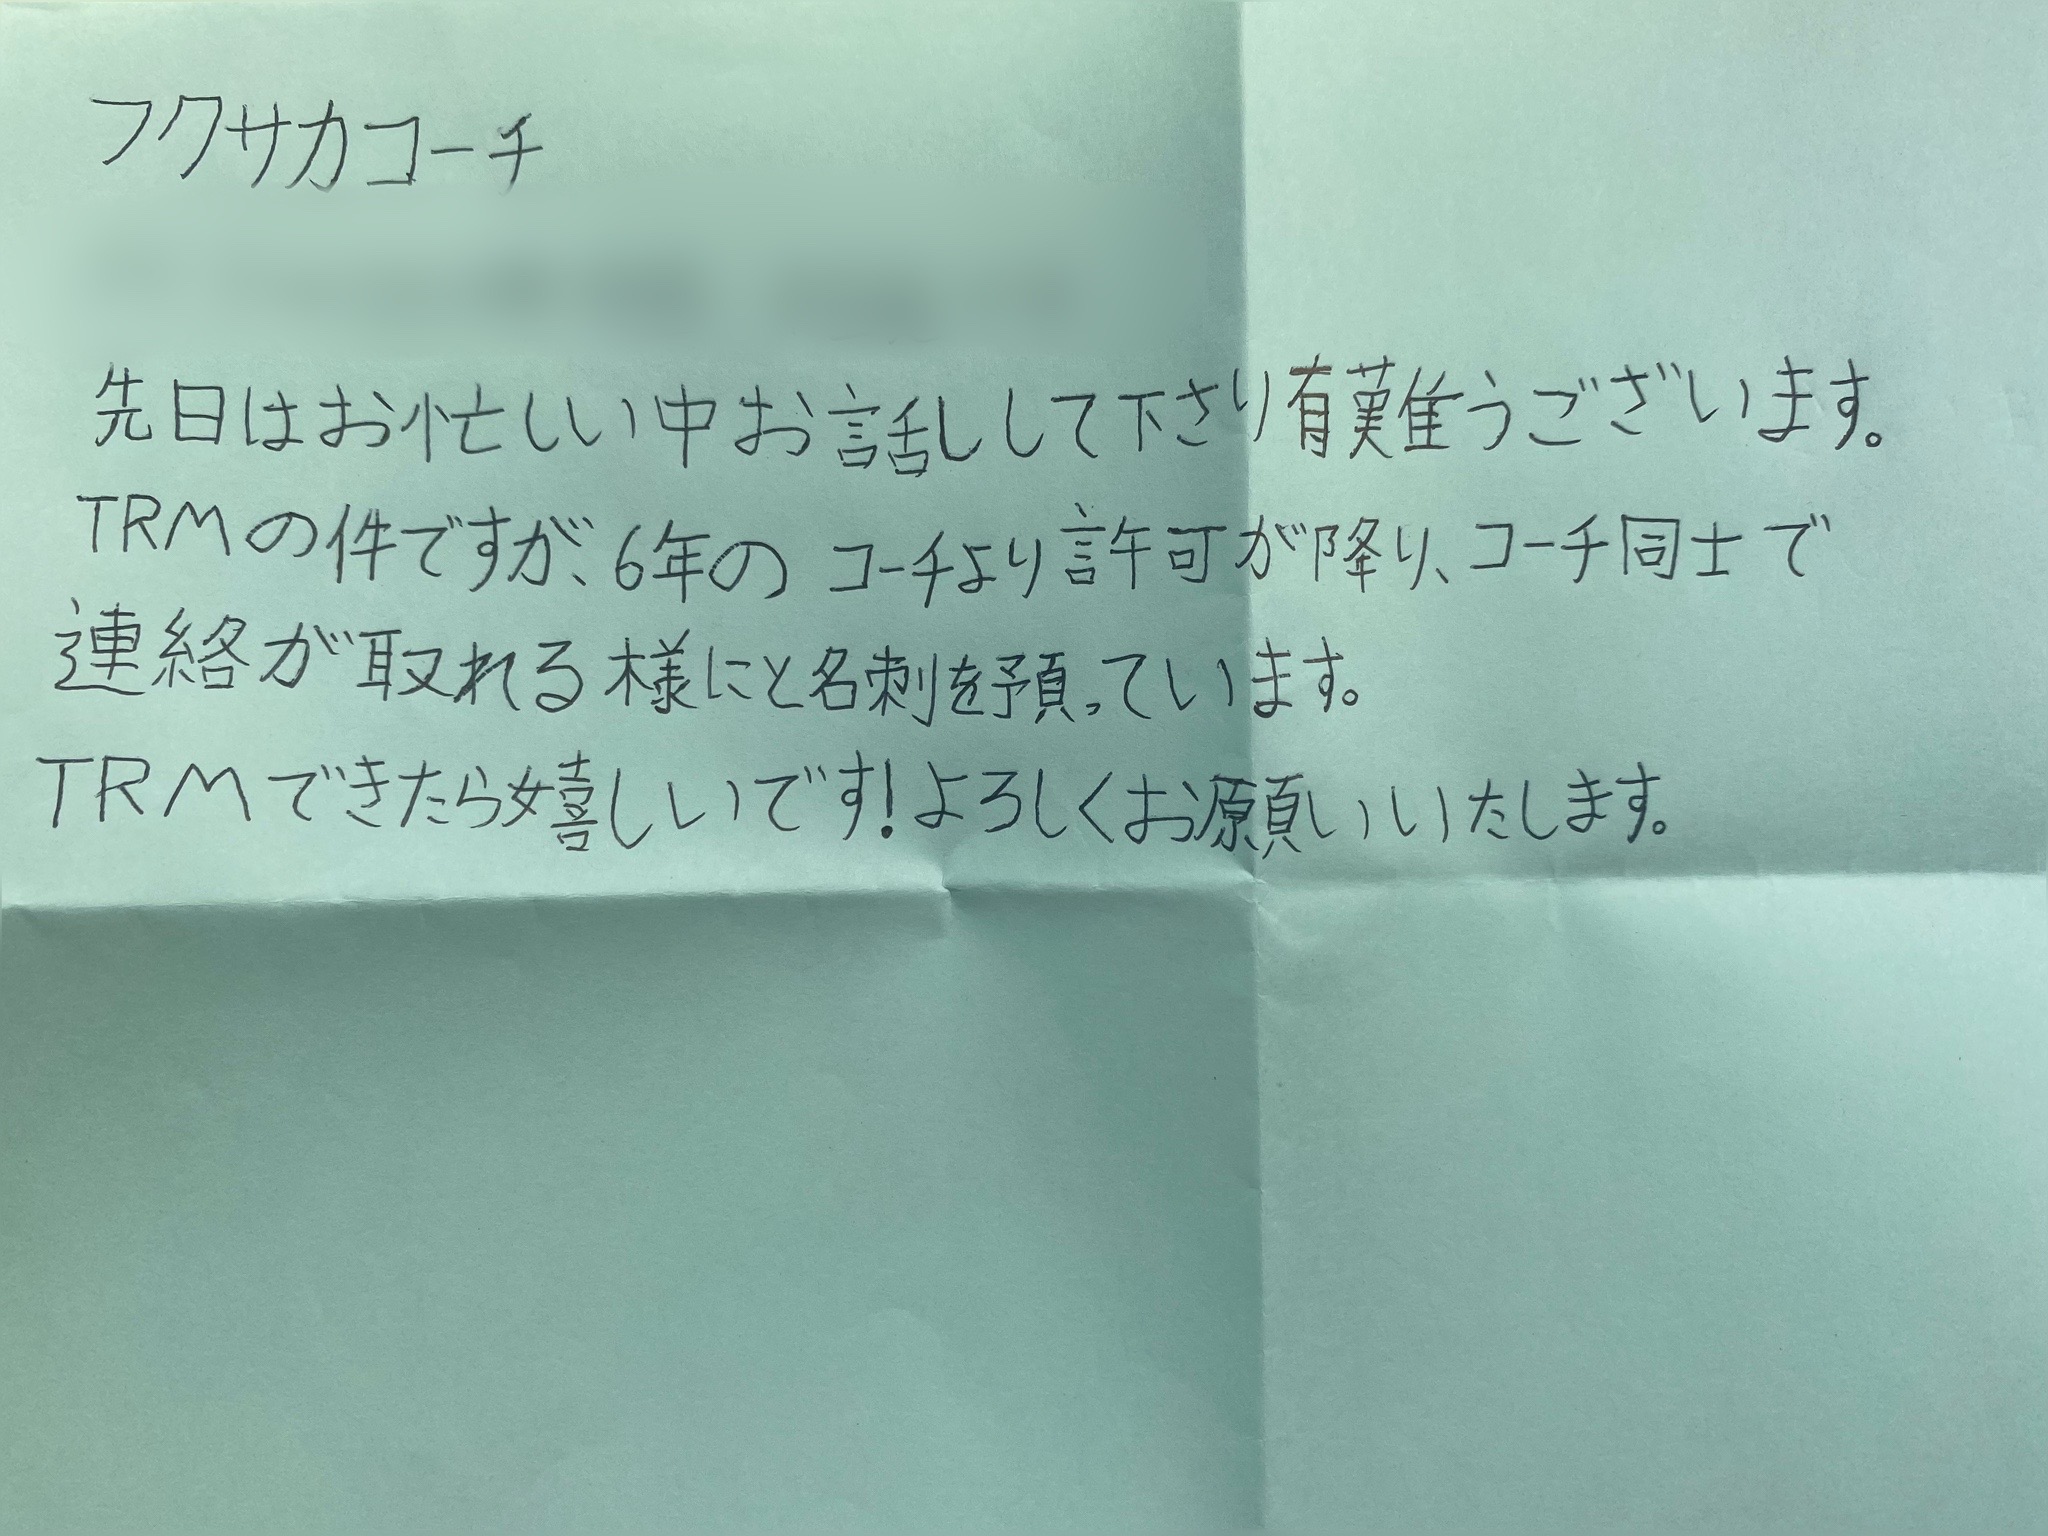 フクサカコーチ
先日はお忙しい中お話しして下さり有難うございます。
TRMの件ですが、6年のコーチより許可が降り、コーチ同士で
連絡が取れる様にと名刺を預っています。
TRMできたら嬉しいです!よろしくお願いいたします。